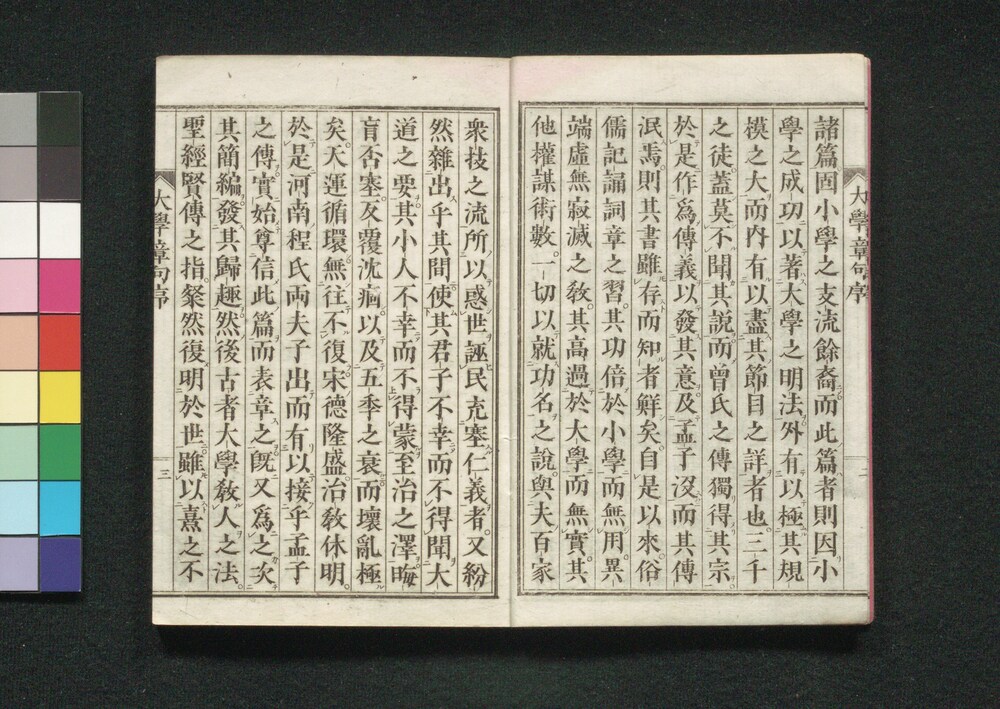 諸篇固小學之支流餘裔而此篇者則因小
學之成功以著大學之明法外有以極其規
模之大而內有以盡其節目之詳者也三千
之徒蓋莫不聞其說而曾氏之傳獨得其宗
於是作爲傳義以發其意及孟子沒而其傳
泯焉則其書雖存而知者鮮矣自是以來俗
儒記誦詞章之習其功倍於小學而無用異
端虛無寂滅之敎其高過於大學而無實其
他權謀術數一切以就功名之說與夫百家
大學章句序
二
衆技之流所以惑世誣民充塞仁義者又紛
然雜出乎其間使其君子不幸而不得聞大
道之要其小人不幸而不得蒙至治之澤晦
盲否塞反覆沈痼以及五季之衰而壞亂極
矣天運循環無往不復宋德隆盛治敎休明
於是河南程氏兩夫子出而有以接乎孟子
之傳實始尊信此篇而表章之旣又爲之次
其簡編發其歸趣然後古者大學敎人之法
聖經賢傳之指粲然復明於世雖以熹之不
大學章句序
三